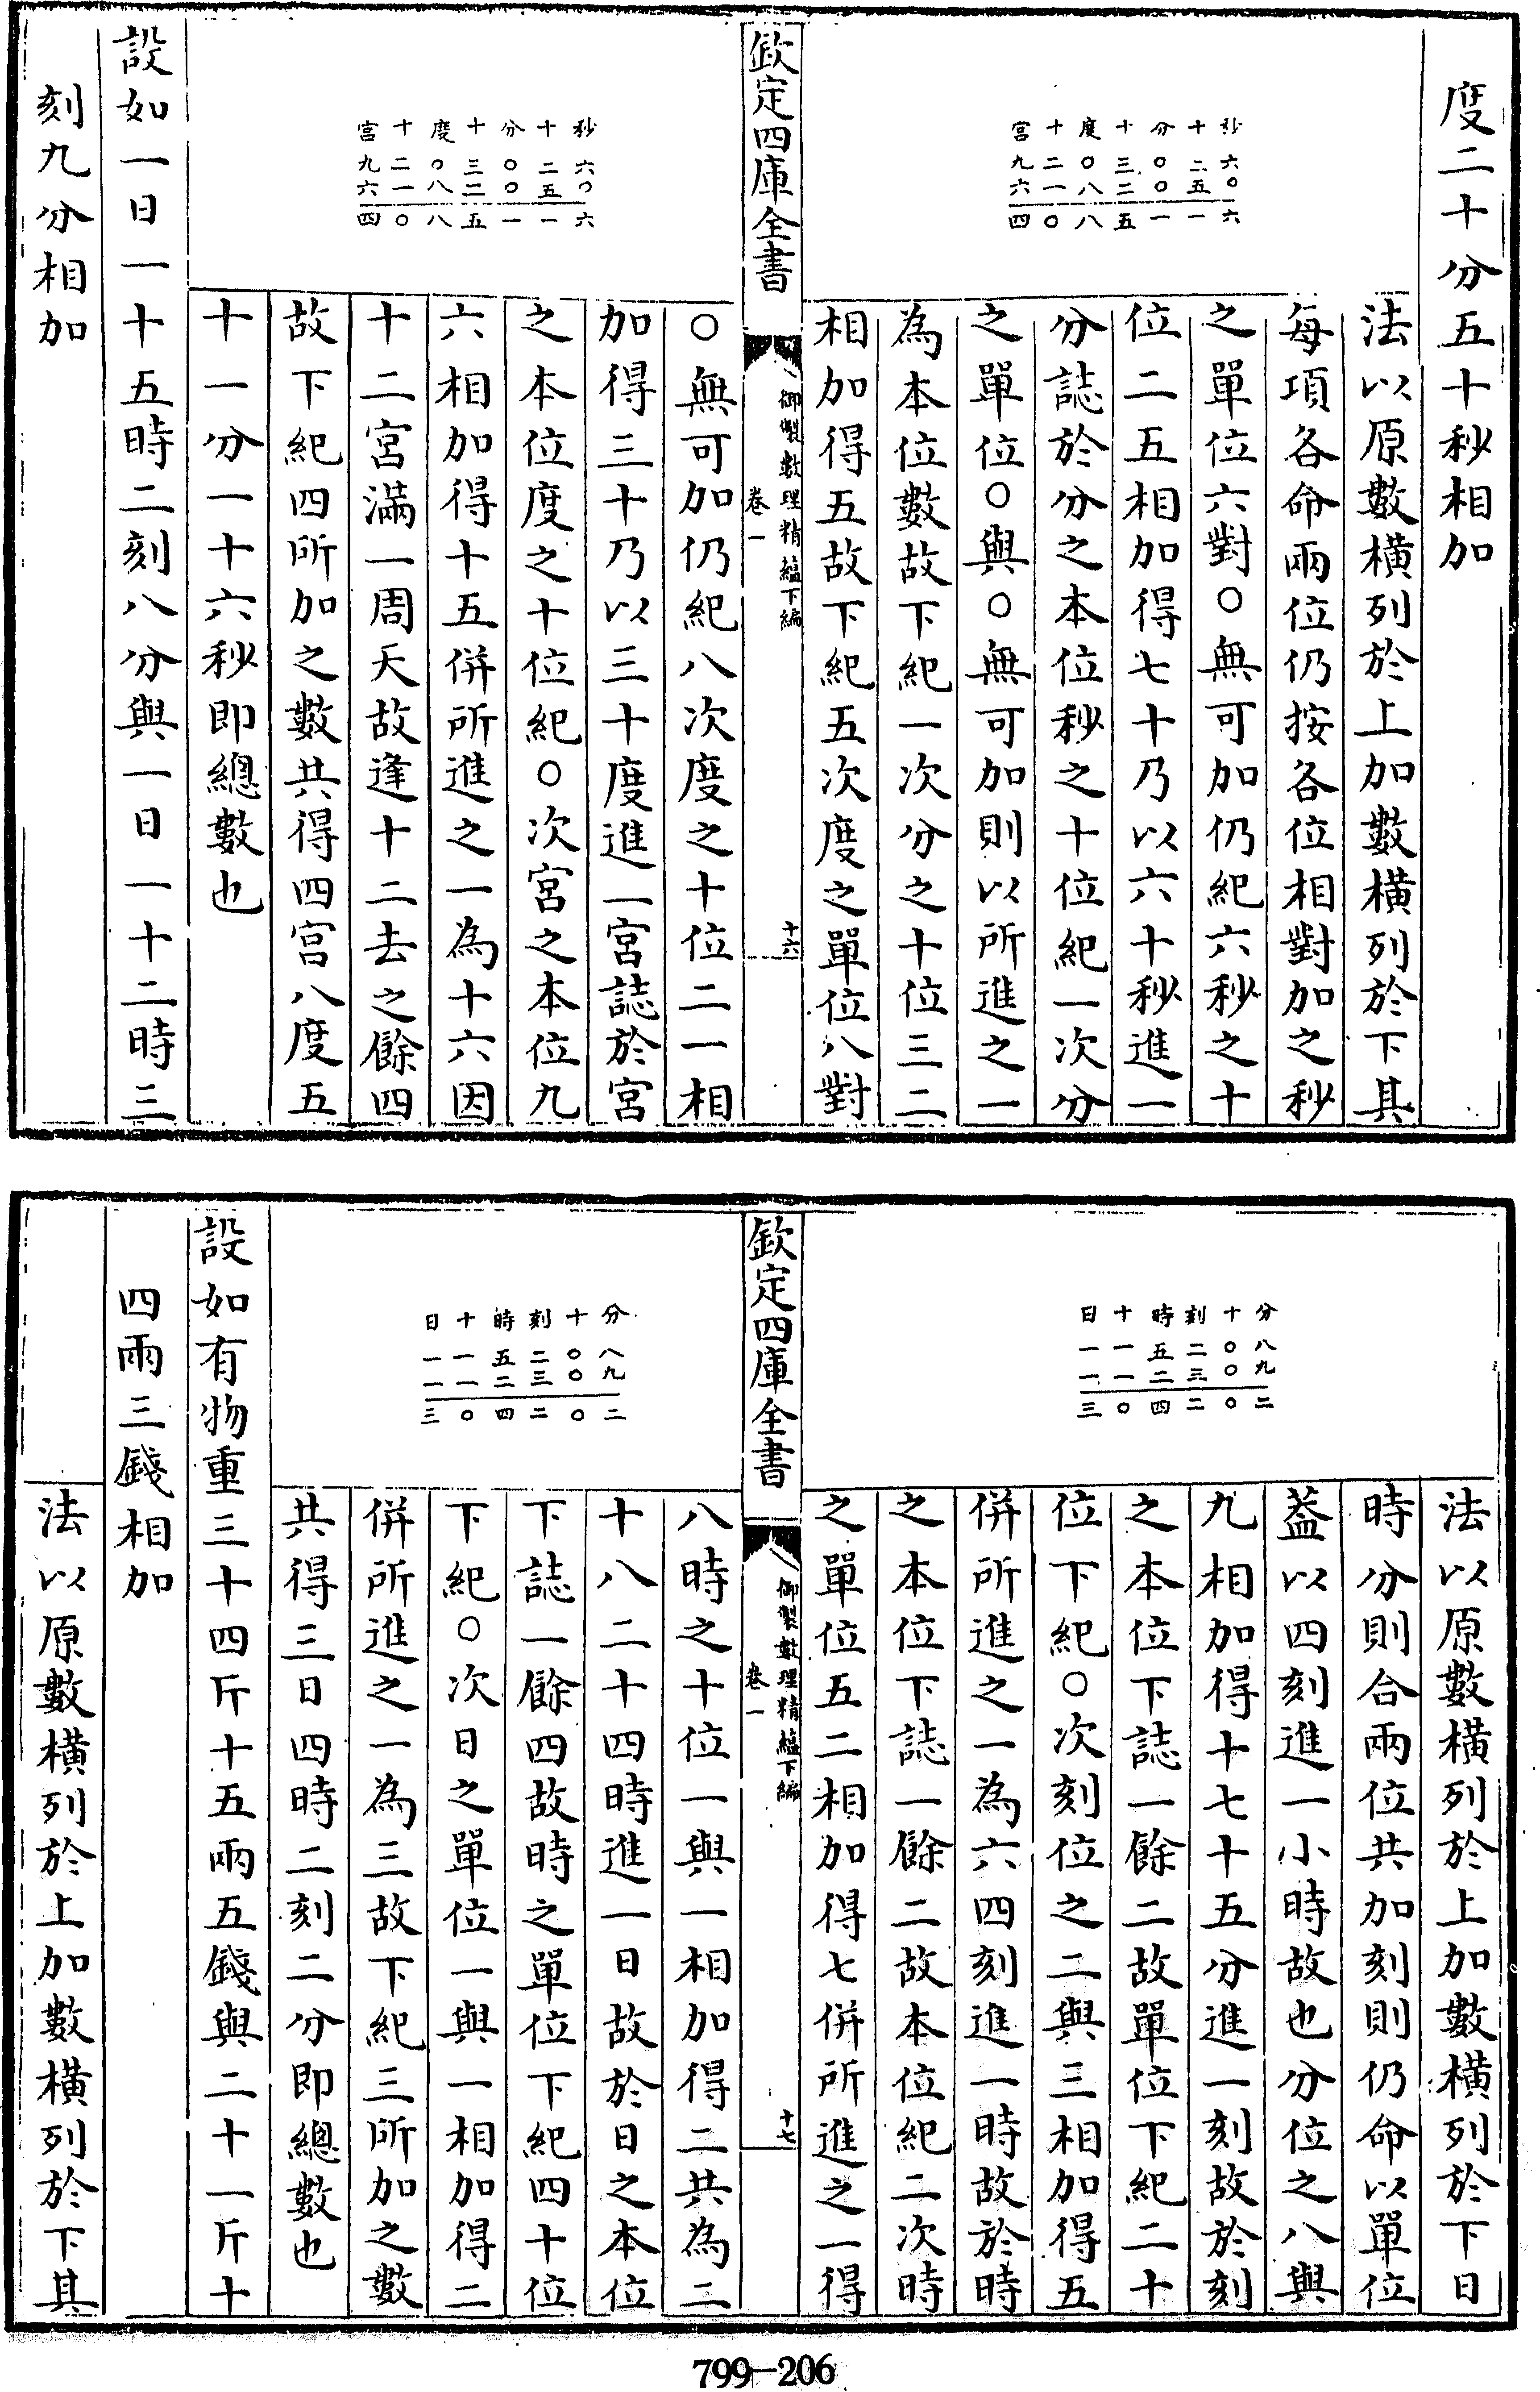 度二十分五十秒相加
秒六〇六
十二五一
分〇〇一
十三二五
度〇八八
十二一〇
宮九六四
法以原數横列於上加數横列於下其
每項各命兩位仍按各位相對加之秒
之單位六對〇無可加仍紀六秒之十
位二五相加得七十乃以六十秒進一
分誌於分之本位秒之十位紀一次分
之單位〇與〇無可加則以所進之一
為本位數故下紀一次分之十位三二
相加得五故下紀五次度之單位八對
欽定四庫全書
御製數理精藴下編
卷一
十六
秒六〇六
十二五一
分〇〇一
十三二五
度〇八八
十二一〇
宮九六四
〇無可加仍紀八次度之十位二一相
加得三十乃以三十度進一宮誌於宮
之本位度之十位紀〇次宮之本位九
六相加得十五併所進之一為十六因
十二宮滿一周天故逢十二去之餘四
故下紀四所加之數共得四宮八度五
十一分一十六秒即總數也
設如一日一十五時二刻八分與一日一十二時三
刻九分相加
分八九二
十〇〇〇
刻二三二
時五二四
十一一〇
日一一三
法以原數横列於上加數横列於下日
時分則合兩位共加刻則仍命以單位
葢以四刻進一小時故也分位之八與
九相加得十七十五分進一刻故於刻
之本位下誌一餘二故單位下紀二十
位下紀〇次刻位之二與三相加得五
併所進之一為六四刻進一時故於時
之本位下誌一餘二故本位紀二次時
之單位五二相加得七併所進之一得
欽定四庫全書
御製數理精藴下編
卷一
十七
分八九二
十〇〇〇
刻二三二
時五二四
十一一〇
日一一三
八時之十位一與一相加得二共為二
十八二十四時進一日故於日之本位
下誌一餘四故時之單位下紀四十位
下紀〇次日之單位一與一相加得二
併所進之一為三故下紀三所加之數
共得三日四時二刻二分即總數也
設如有物重三十四斤十五兩五錢與二十一斤十
四兩三錢相加
法以原數横列於上加數横列於下其
799-206